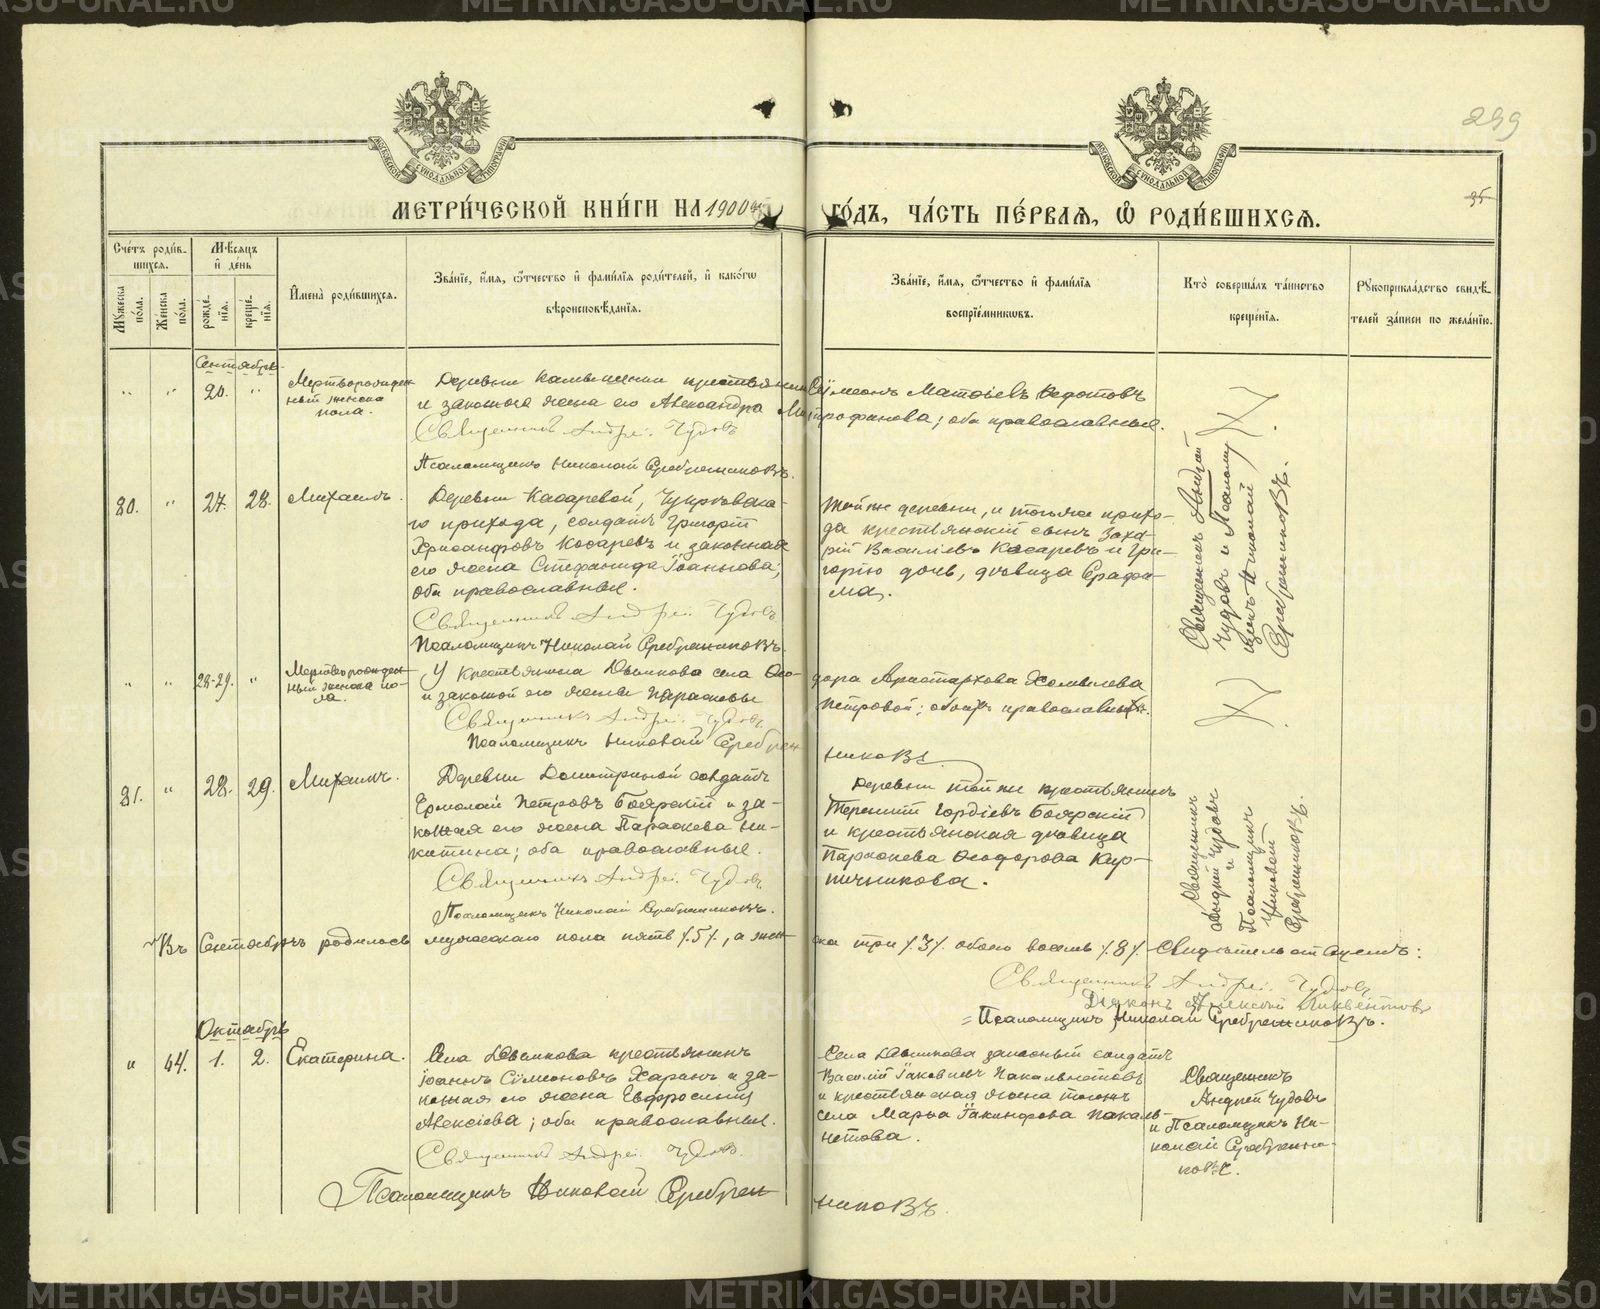 METRIKI.GASO-URAL.RU
299
35
МОСКОВСКОЙ СѴНОДАЛЬНОЙ ТИПОГРАФІИ
МОСКОВСКОЙ СѴНОДАЛЬНОЙ ТИПОГРАФІИ
МЕТРИ́ЧЕСКОЙ КНИ́ГИ НА 1900й ГО́ДЪ, ЧА́СТЬ ПЕ́РВАЯ, Ѽ РОДИ́ВШИХСЯ.
Сче́тъ роди́в-
шихся.
Мѣ́сяцъ
и҆ де́нь
Мꙋ́жеска по́ла.
Же́нска по́ла.
рожде́-
нїя.
креще́-
нїя.
И҆мена̀ роди́вшихся.
Зва́нїе, и҆́мя, ѻ҆́тчество и҆ фами́лїя роди́телей, и҆ како́гѡ
вѣроисповѣ́данїя.
Зва́нїе, и҆́мя, ѻ҆́тчество и҆ фами́лїя
воспрїе́мникѡвъ.
Кто̀ соверша́лъ та́инство
креще́нїя.
Рꙋкоприкла́дство свидѣ́-
телей за́писи по жела́нїю.
Сентябрь
" " 20. " Мертворожден-
ный женска
пола.
Деревни крестьянинъ Сѵмеонъ Матѳіевъ Ѳедотовъ
и законная жена его Александра Митрофанова; оба православные.
Священникъ Андрей Чудовъ
Псаломщикъ Николай Серебренниковъ.
80. " 27. 28. Михаилъ.
Деревни Косаревой, Чукровска-
го прихода, солдатъ Григорій
Хрисанфовъ Косаревъ и законная
его жена Стефанида Іоаннова;
оба православные.
Священникъ Андрей Чудовъ
Псаломщикъ Николай Серебренниковъ.
Той же деревни, и тогоже прихо-
да крестьянскій сынъ Заха-
рій Василіевъ Косаревъ и Гри-
горію дочь, дѣвица Серафи-
ма.
Священникъ Андрей
Чудовъ и Псалом-
щикъ Николай
Серебренниковъ.
" " 28-29. " Мертворожден-
ный женска по-
ла.
У крестьянина села Ѳеодора Аристархова
и законной его жены Параскевы Петровой; обоихъ православныхъ.
Священникъ Андрей Чудовъ
Псаломщикъ Николай Серебренниковъ.
81. " 28. 29. Михаилъ.
Деревни солдатъ
Ермолай Петровъ Боярскій и за-
конная его жена Параскева Ни-
китина; оба православные.
Священникъ Андрей Чудовъ
Псаломщикъ Николай Серебренниковъ.
Деревни той же крестьянинъ
Терентій Гордіевъ Боярскій
и крестьянская дѣвица
Параскева Ѳеодорова Кир-
пичникова.
Священникъ
Андрей Чудовъ
и
Псаломщикъ
Николай
Серебренниковъ.
Въ Сентябрѣ родилось мужескаго пола пять /.5/., а жен-
ска три /.3/. обоего восемь /.8/.
Священникъ Андрей Чудовъ
Діаконъ Алексій
Псаломщикъ Николай Серебренниковъ.
Октябрь
" 64. 1. 2. Екатерина.
Села крестьянинъ
Іоаннъ Сѵмеоновъ и за-
конная его жена Евфросинія
Алексіева; оба православные.
Священникъ Андрей Чудовъ
Псаломщикъ Николай Серебренниковъ.
Села запасный солдатъ
Василій Іаковлевъ
и крестьянская жена тогоже
села Марѳа Іакинфова
Священникъ
Андрей Чудовъ
и Псаломщикъ Ни-
колай Серебренни-
ковъ.